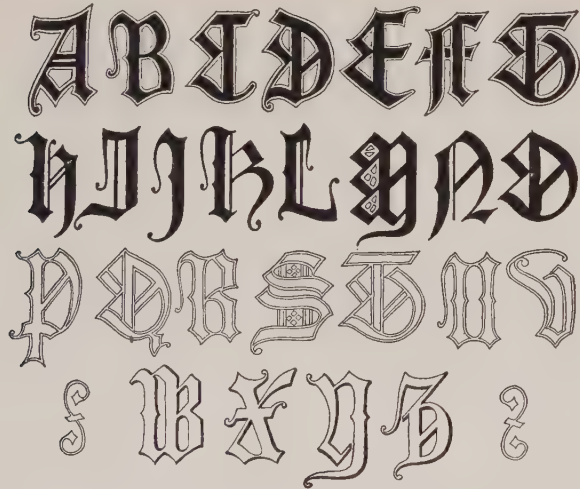 A B C D E F G
H I J K L M N O
P Q R S T U V
W X Y Z